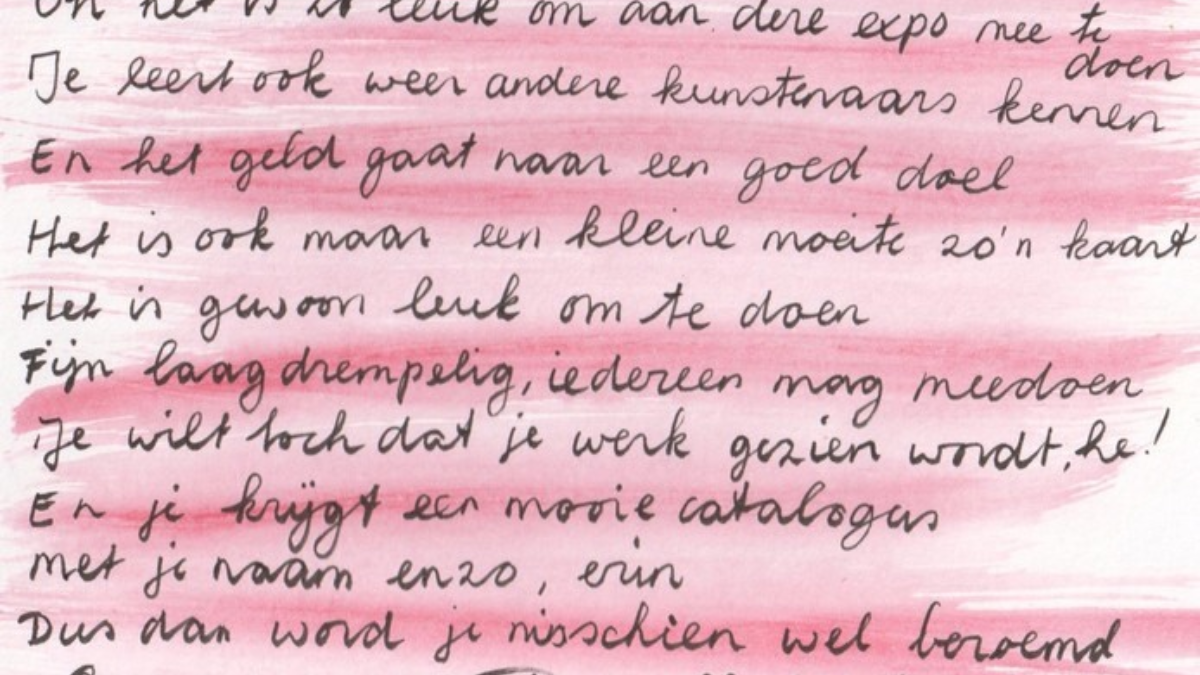 het is zo leuk om aan deze expo mee te
doen
Je leert ook weer andere kunstenaars kennen
En het geld gaat naar een goed doel
Het is ook maar een kleine moeite zo'n kaart
Het is gewoon leuk om te doen
Fijn laagdrempelig, iedereen mag meedoen
Je wilt toch dat je werk gezien wordt, he!
En je krijgt een mooie catalogus
met je naam enzo, erin
Dus dan word je misschien wel beroemd